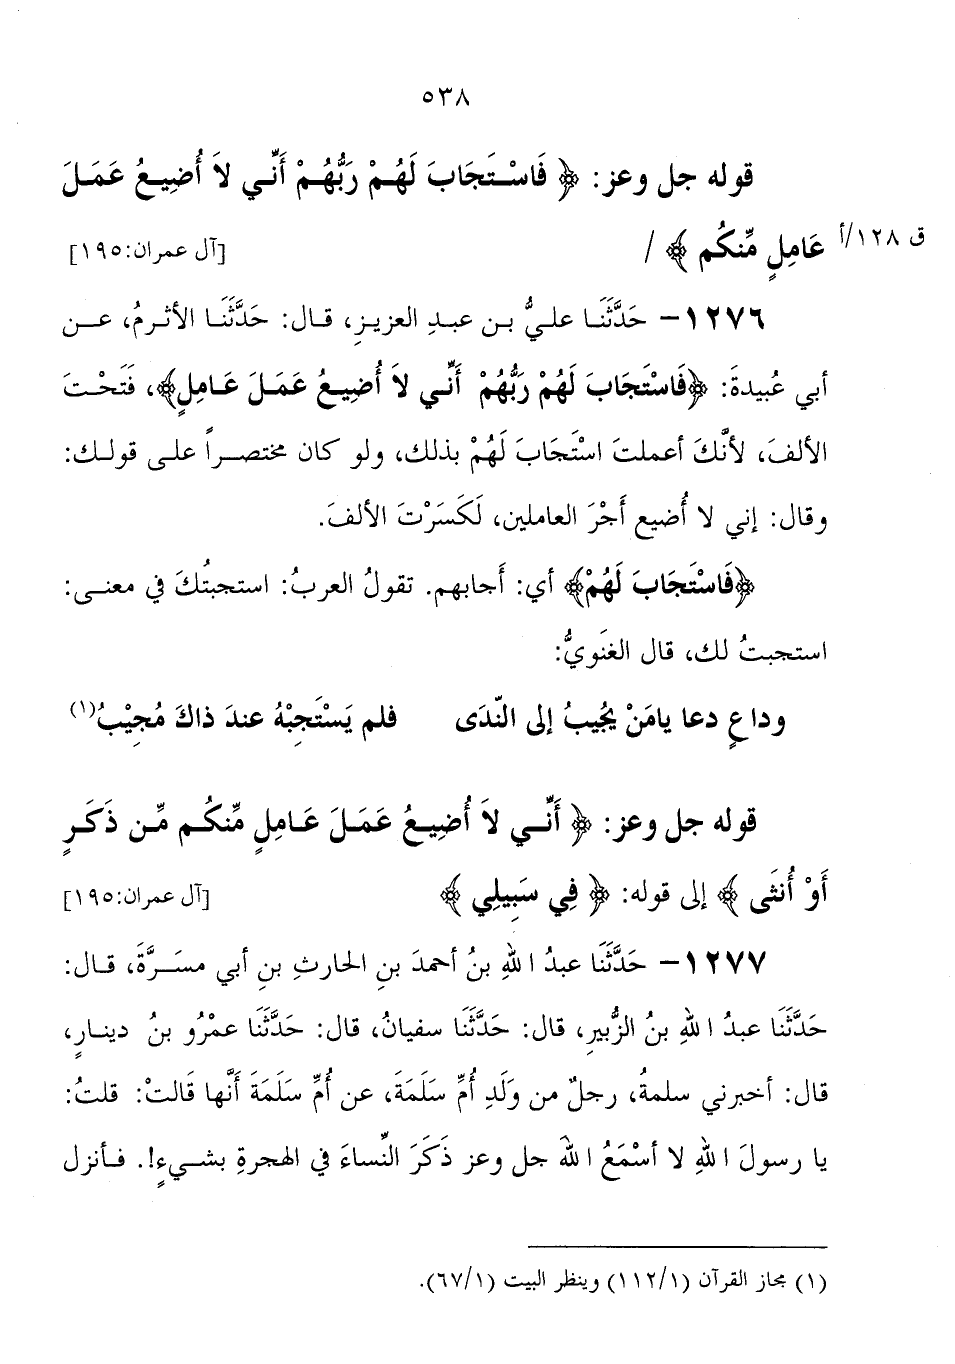 ٥٣٨
قوله جل وعز: ﴿ فَاسْتَجَابَ لَهُمْ رَبُّهُمْ أَنِّي لاَ أُضِيعُ عَمَلَ
عَامِلٍ مِّنكُم ﴾ / [آل عمران:١٩٥]
ق ١٢٨/أ
١٢٧٦– حَدَّثَنَا عليُّ بن عبدِ العزيزِ، قال: حَدَّثَنَا الأثرمُ، عن
أبي عُبيدةَ: ﴿فَاسْتَجَابَ لَهُمْ رَبُّهُمْ أَنِّي لاَ أُضِيعُ عَمَلَ عَامِلٍ﴾، فَتَحْتَ
الألفَ، لأنَّكَ أعملتَ اسْتَجَابَ لَهُمْ بذلك، ولو كان مختصراً على قولك:
وقال: إني لا أُضيع أَجْرَ العاملين، لَكَسَرْتَ الألفَ.
﴿فَاسْتَجَابَ لَهُمْ﴾ أي: أَجابهم. تقولُ العربُ: استجبتُكَ في معنى:
استجبتُ لك، قال الغَنَويُّ:
وداعٍ دعا يامَنْ يُجيبُ إلى النّدَى فلم يَسْتَجِبْهُ عندَ ذاكَ مُجِيْبُ(١)
قوله جل وعز: ﴿ أَنِّي لاَ أُضِيعُ عَمَلَ عَامِلٍ مِّنكُم مِّن ذَكَرٍ
أَوْ أُنثَى ﴾ إلى قوله: ﴿ فِي سَبِيلِي ﴾ [آل عمران:١٩٥]
١٢٧٧– حَدَّثَنَا عبدُ اللهِ بنُ أحمدَ بنِ الحارثِ بنِ أبي مسَرَّةَ، قال:
حَدَّثَنَا عبدُ اللهِ بنُ الزُّبيرِ، قال: حَدَّثَنَا سفيانُ، قال: حَدَّثَنَا عمْرُو بنُ دينارٍ،
قال: أخبرني سلمةُ، رجلٌ من وَلَدِ أُمِّ سَلَمَةَ، عن أُمِّ سَلَمَةَ أَنَّها قَالتْ: قلتُ:
يا رسولَ اللهِ لا أسْمَعُ اللهَ جل وعز ذَكَرَ النِّساءَ في الهجرةِ بشيءٍ!. فأنزل
(١) مجاز القرآن (١١٢/١) وينظر البيت (٦٧/١).